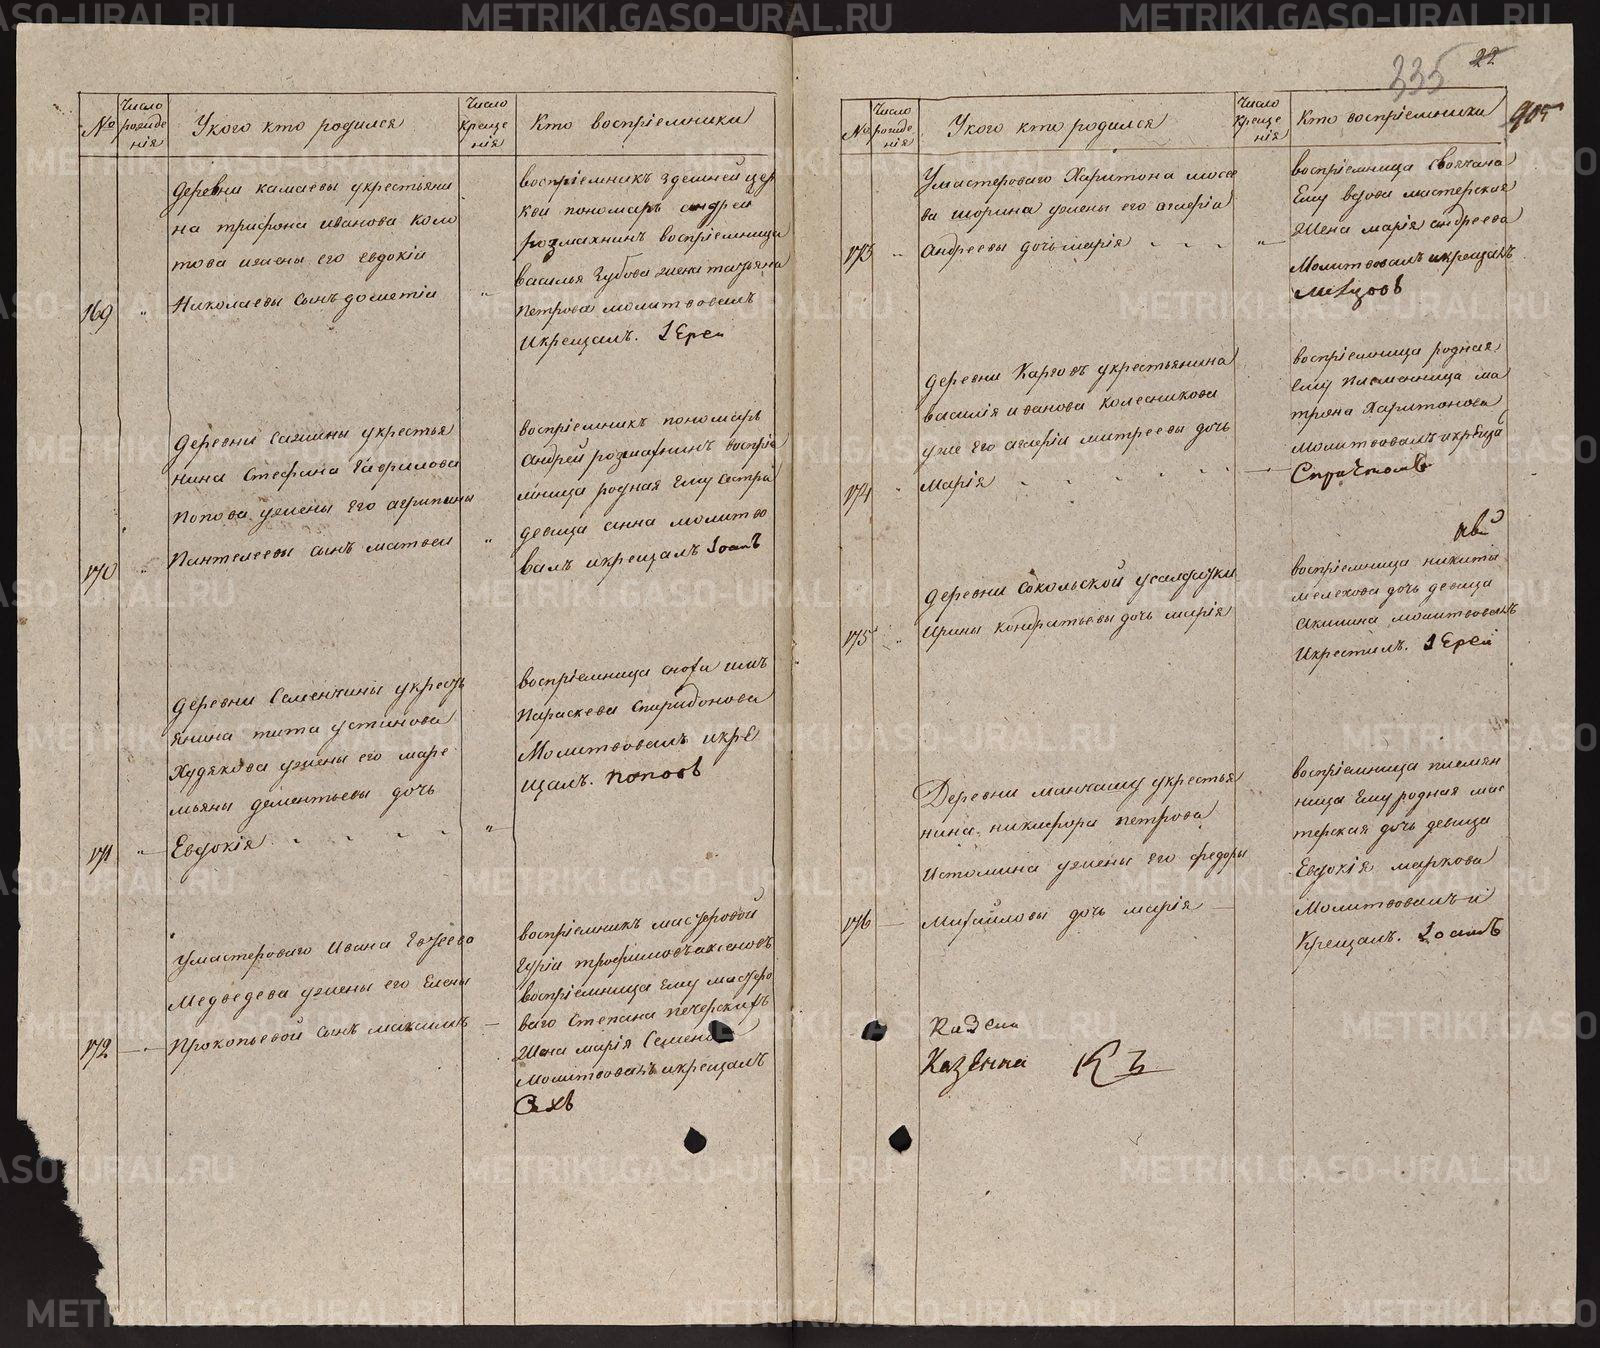 №
Число рожде нія
У кого кто родился
Число Креще нія
Кто воспріемники
169
деревни камаевы укрестьяни
на трифона иванова колмо
това жены его евдокіи
Николаевы сынъ дометіи
воспріемникъ здешней цер
кви пономарь андреи
розмахнинъ воспріемница
василья Зубова жена татьяна
петрова молитвовалъ
и крещалъ. Іереи
170
деревни Сажины укрестья
нина Стефана Гаврилова
Попова ужены его агрипины
Пантелеевы сынъ матвеи
воспріемникъ пономарь
андрей розмахнинъ воспріе
мница родная ему сестра
девица анна молитво
валъ и крещалъ Іоанъ
171
деревни Семенчины укресть
янина тита устинова
Худякова ужены его маре
мьяны дементьевы дочь
Евдокія
воспріемница сноха имъ
Параскева Спиридонова
Молитвовалъ и кре
щалъ. поповъ
172
умастероваго Ивана Евсеева
Медведева ужены его Елены
Прокопьевой сынъ максимъ
воспріемникъ мастеровой
Гуріи трофимовъ аксеновъ
воспріемница ему мастеро
ваго Степана печерскихъ
жена марія Семено
молитвовалъ и крещалъ
335
22
905
№
Число рожде нія
У кого кто родился
Число Креще нія
Кто воспріемники
173
Умастероваго Харитона мосее
ва шорина ужены его
Андреевы дочь марія
воспріемница своячина
Ему вдова мастерская
Жена марія андреева
Молитвовалъ и крещалъ
174
деревни Каргов укрестьянина
василія иванова колесникова
уже его митреевы дочь
марія
воспріемница родная
ему племянница ма
трена Харитонова
молитвовалъ и креща
175
деревни сокольской усалдатки
Ирины кондратьевы дочь марія
воспріемница никита
мелехова дочь девица
акилина молитвовалъ
и крестилъ. Іереи
176
Деревни манчашу укрестья
нина никифора петрова
Истомина ужены его федоры
Михайловы дочь марія
воспріемница племян
ница ему родная мас
терская дочь девица
Евдокія маркова
Молитвовалъ и
Крещалъ. Іоанъ
Казенна
Къ
METRIKI.GASO-URAL.RU